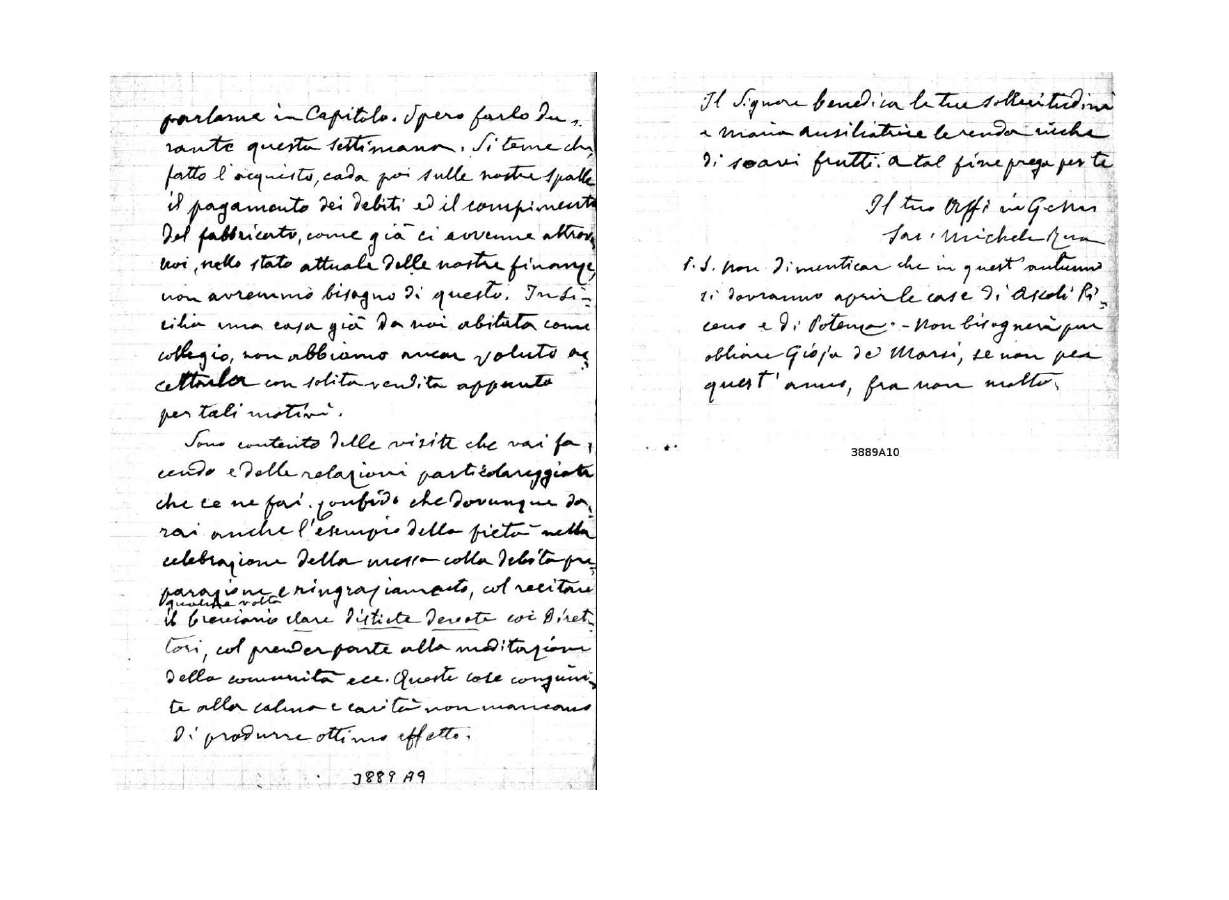 parlarne in Capitolo. Spero farlo du-
rante questa settimana. Si teme che,
fatto l'acquisto, cada poi sulle nostre spalle
il pagamento dei debiti ed il compimento
del fabbricato, come già ci avvenne altrove
noi, nello stato attuale delle nostre finanze,
non avremmo bisogno di questo. In Si-
cilia una casa già da noi abitata come
collegio, non abbiamo ancor voluto ac-
cettarla con solita vendita appunto
per tali motivi.
Sono contento delle visite che vai fa-
cendo e delle relazioni particolareggiate
che ce ne fai. Confido che dovunque da-
rai anche l'esempio della pietà nella
celebrazione della messa colla debita pre-
parazione e ringraziamento, col recitare
qualche volta
il breviario clare distincte devote coi Diret-
tori, col prender parte alla meditazione
della comunità ecc. Queste cose congiun-
te alla calma e carità non mancano
di produrre ottimo effetto.
3889 A9
Il Signore benedica le tue sollecitudini
e Maria Ausiliatrice le renda ricche
di soavi frutti. A tal fine prega per te
Il tuo in G.
Sac. Michele Rua
P.S. Non dimenticar che in quest'autunno
si dovranno aprir le case di Ascoli Pi-
ceno e di Potenza. - Non bisognerà pur
obliare Gioja de' Marsi, se non per
quest'anno, fra non molto.
3889A10